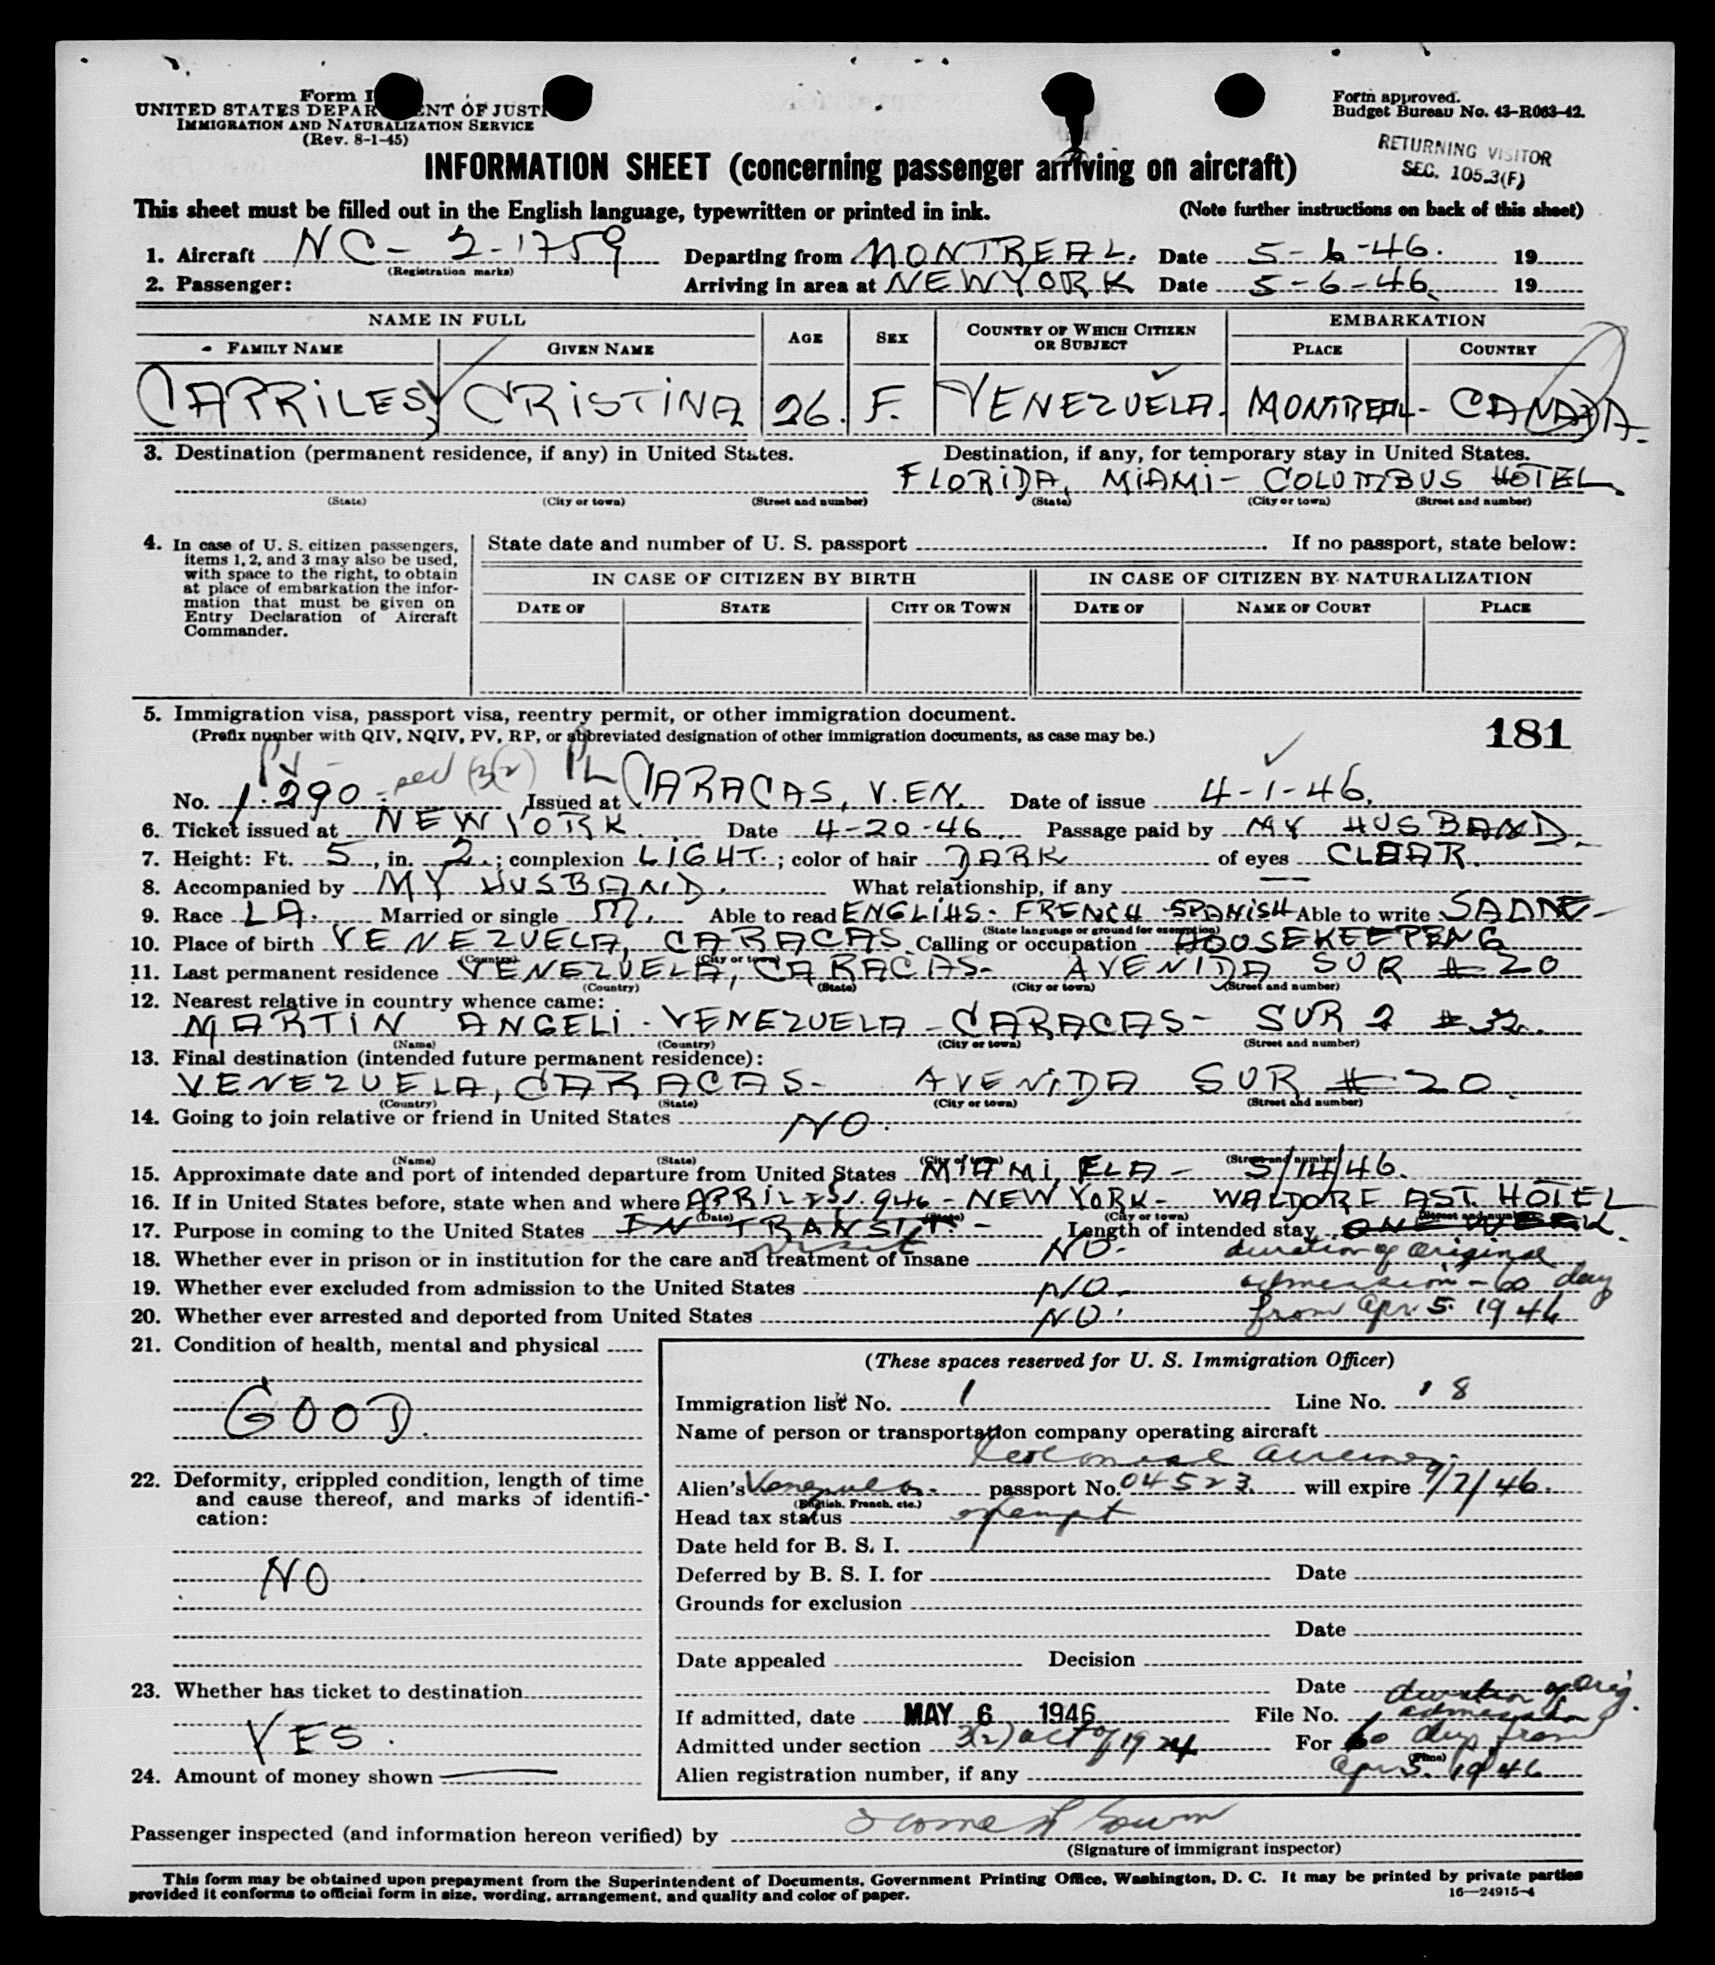 Form I
UNITED STATES DEPAR ENT OF JUSTI
IMMIGRATION AND NATURALIZATION SERVICE
(Rev. 8-1-45)
Form approved.
Budget Bureau No. 43-R063-42.
RETURNING VISITOR
SEC. 105.3(F)
INFORMATION SHEET (concerning passenger arriving on aircraft)
This sheet must be filled out in the English language, typewritten or printed in ink. (Note further instructions on back of this sheet)
1. Aircraft NC-2-1759 Departing from MONTREAL. Date 5-6-46. 19
(Registration marks)
2. Passenger: Arriving in area at NEW YORK Date 5-6-46. 19
NAME IN FULL AGE SEX COUNTRY OF WHICH CITIZEN OR SUBJECT EMBARKATION
FAMILY NAME GIVEN NAME PLACE COUNTRY
CAPRILES, CRISTINA 26. F. VENEZUELA. MONTREAL- CANADA.
3. Destination (permanent residence, if any) in United States. Destination, if any, for temporary stay in United States.
FLORIDA, MIAMI- COLUMBUS HOTEL.
(State) (City or town) (Street and number) (State) (City or town) (Street and number)
4. In case of U. S. citizen passengers, items 1, 2, and 3 may also be used, with space to the right, to obtain at place of embarkation the information that must be given on Entry Declaration of Aircraft Commander.
State date and number of U. S. passport If no passport, state below:
IN CASE OF CITIZEN BY BIRTH IN CASE OF CITIZEN BY NATURALIZATION
DATE OF STATE CITY OR TOWN DATE OF NAME OF COURT PLACE
5. Immigration visa, passport visa, reentry permit, or other immigration document.
(Prefix number with QIV, NQIV, PV, RP, or abbreviated designation of other immigration documents, as case may be.)
181
PV
No. 1.290 3(2) Issued at CARACAS, VEN. Date of issue 4-1-46.
6. Ticket issued at NEW YORK Date 4-20-46. Passage paid by MY HUSBAND.
7. Height: Ft. 5, in. 2.; complexion LIGHT.; color of hair DARK of eyes CLEAR.
8. Accompanied by MY HUSBAND. What relationship, if any
9. Race LA. Married or single M. Able to read ENGLIHS- FRENCH-SPANISH Able to write SAME-
(State language or ground for exemption)
10. Place of birth VENEZUELA, CARACAS Calling or occupation HOUSEKEEPING
(Country) (City or town)
11. Last permanent residence VENEZUELA, CARACAS- AVENIDA SUR # 20
(Country) (State) (City or town) (Street and number)
12. Nearest relative in country whence came:
MARTIN ANGELI- VENEZUELA-CARACAS- SUR 2 # 32.
(Name) (Country) (City or town) (Street and number)
13. Final destination (intended future permanent residence):
VENEZUELA, CARACAS- AVENIDA SUR # 20
(Country) (State) (City or town) (Street and number)
14. Going to join relative or friend in United States NO.
(Name) (State) (City or town) (Street and number)
15. Approximate date and port of intended departure from United States MIAMI, FLA- 5/14/46.
16. If in United States before, state when and where APRIL 1946- NEW YORK- WALDORF AST. HOTEL
(Date) (State) (City or town) (Street and number)
17. Purpose in coming to the United States IN TRANSIT.- Length of intended stay ONE WEEK.
visit
18. Whether ever in prison or in institution for the care and treatment of insane NO. duration of original
19. Whether ever excluded from admission to the United States NO. admission - 60 day
20. Whether ever arrested and deported from United States NO. from Apr 5. 1946
21. Condition of health, mental and physical
GOOD.
22. Deformity, crippled condition, length of time and cause thereof, and marks of identification:
NO
23. Whether has ticket to destination
YES.
24. Amount of money shown
(These spaces reserved for U. S. Immigration Officer)
Immigration list No. 1 Line No. 18
Name of person or transportation company operating aircraft
Colonial Airlines.
Alien's Venezuela passport No. 04523. will expire 9/7/46.
(English, French, etc.)
Head tax status exempt
Date held for B. S. I.
Deferred by B. S. I. for Date
Grounds for exclusion
Date
Date appealed Decision
Date
If admitted, date MAY 6 1946 File No. duration of orig. admission
Admitted under section 3(2) act of 1924 For 60 days from
(Time)
Alien registration number, if any Apr 5. 1946
Passenger inspected (and information hereon verified) by
(Signature of immigrant inspector)
This form may be obtained upon prepayment from the Superintendent of Documents, Government Printing Office, Washington, D. C. It may be printed by private parties
provided it conforms to official form in size, wording, arrangement, and quality and color of paper. 16—24915-4